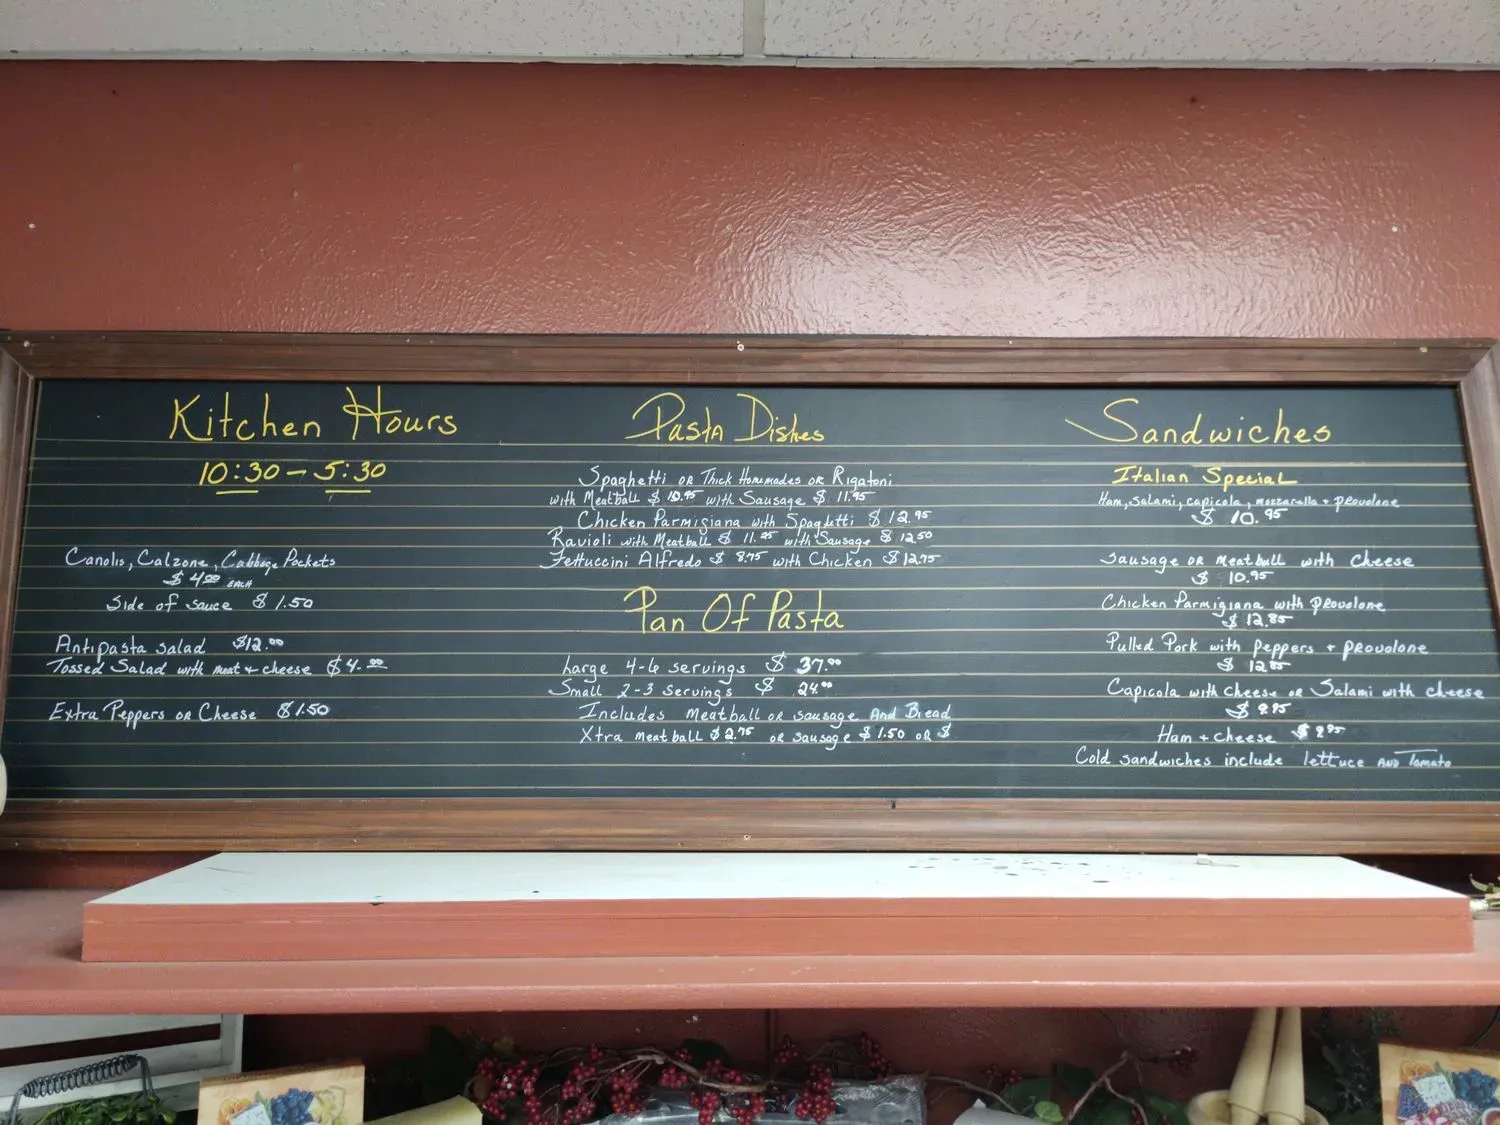 Kitchen Hours
10:30 - 5:30
Canolis, Calzone, Cabbage Pockets
$ 4.00 EACH
Side of sauce $ 1.50
Antipasta salad $12.00
Tossed Salad with meat + cheese $4.00
Extra Peppers or Cheese $1.50
Pasta Dishes
Spaghetti or Thick Homemades or Rigatoni
with Meatball $ 10.95 with Sausage $ 11.95
Chicken Parmigiana with Spaghetti $ 12.95
Ravioli with Meatball $ 11.95 with Sausage $ 12.50
Fettuccini Alfredo $ 8.75 with Chicken $ 12.75
Pan Of Pasta
Large 4-6 servings $ 37.00
Small 2-3 servings $ 24.00
Includes Meatball or sausage And Bread
Xtra meatball $ 2.75 or sausage $ 1.50 or $
Sandwiches
Italian Special
Ham, Salami, capicola, mozzarella + provolone
$ 10.95
Sausage or meatball with cheese
$ 10.95
Chicken Parmigiana with provolone
$ 12.85
Pulled Pork with peppers + provolone
$ 12.85
Capicola with cheese or Salami with cheese
$ 9.95
Ham + cheese $ 9.95
Cold sandwiches include lettuce AND Tomato